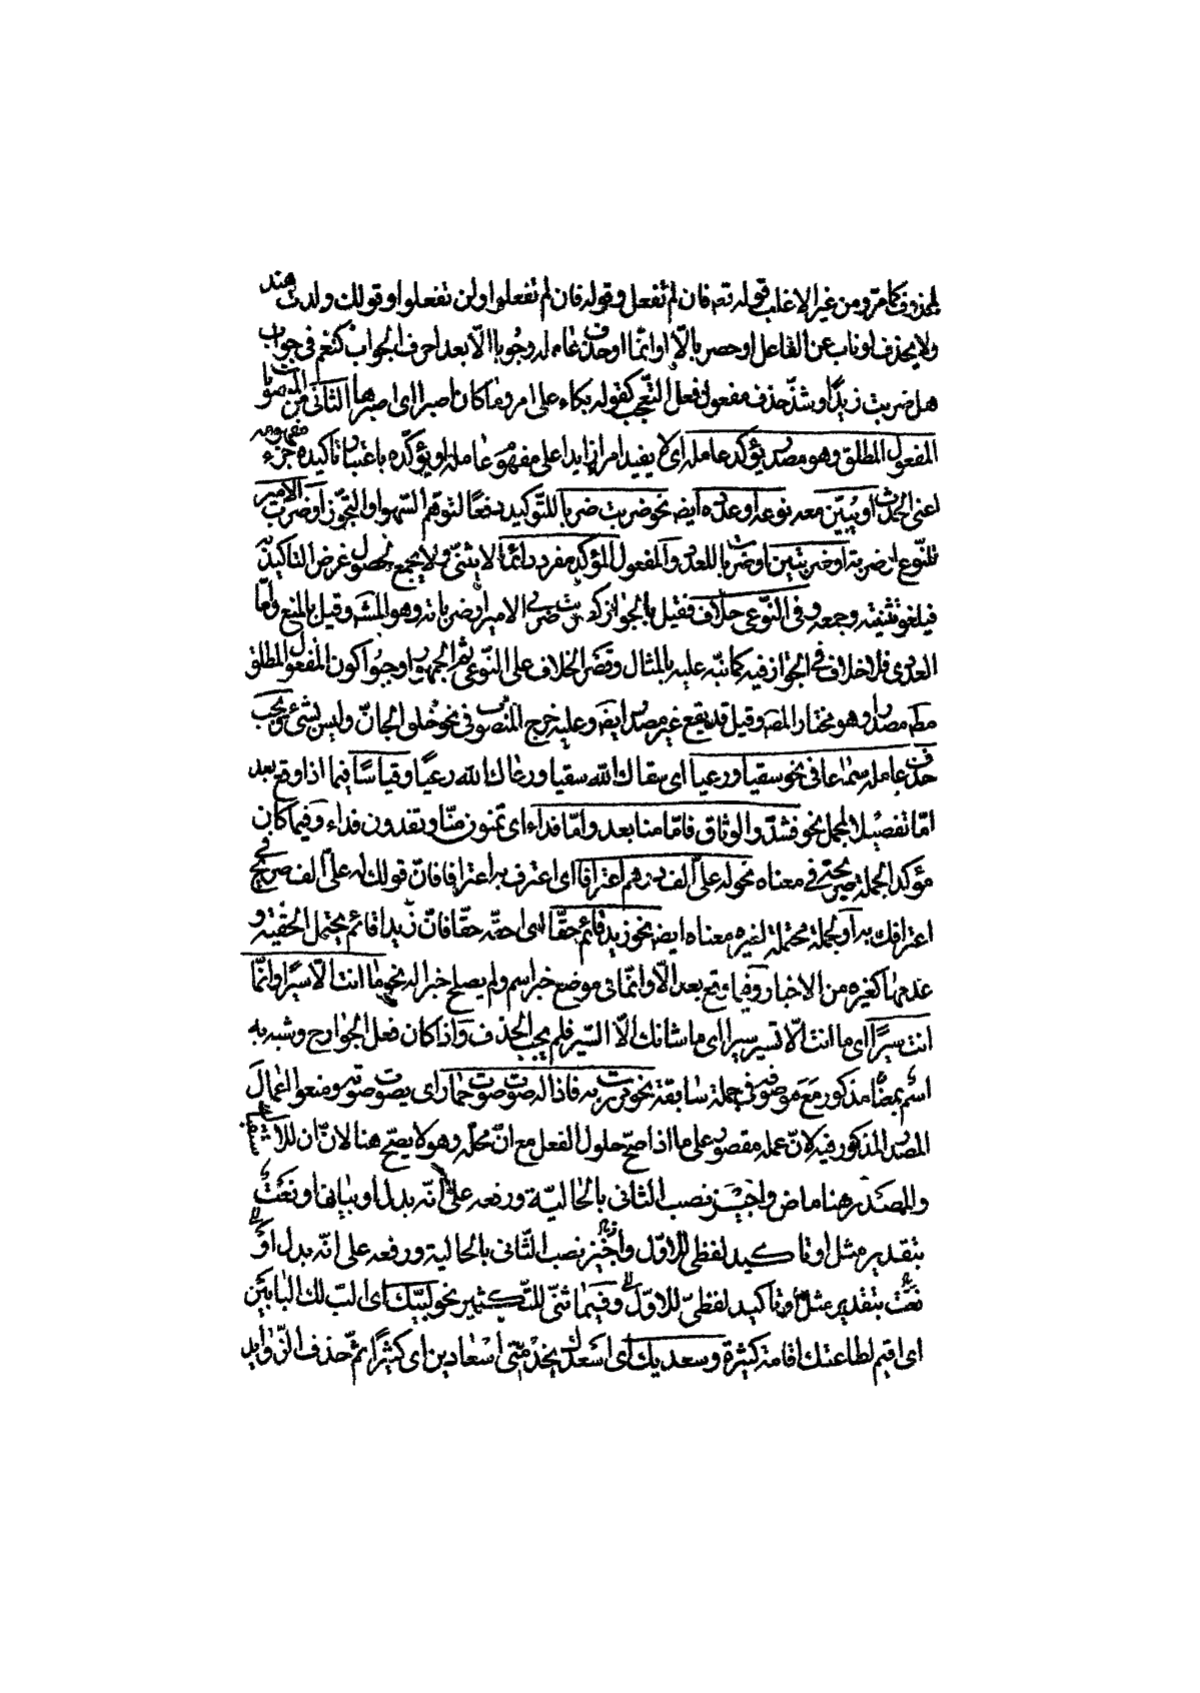 المحذوف كما مرّ ومن غير الاغلب قوله تعه فان لم تفعل وقوله فان لم تفعلوا ولن تفعلوا وقولك ولدت هند
ولا يحذف لو ناب عن الفاعل او حصر بالّا او انّما او حذف عامله وجوبا الّا بعد احرف الجواب كنعم فى جواب
هل ضربت زيدًا وشذّ حذف مفعول فعل التعجّب كقوله بكاء على امرو ما كان اصبرا اى اصبرها الثانى من المنصوبات
المفعول المطلق وهو مصدر يؤكّد عامله اى لا يفيد امرا زايدا على مفهوم عامله او يؤكّده باعتبار تاكيده جزء مفهومه
اعنى الحدث او يبيّن معه نوعه او عدده ايضه نحو ضربت ضربا للتّوكيد دفعًا لتوهّم السّهو او التجوّز او ضرب الامير
للنّوع او ضربة او ضربتين او ضربات للعدد والمفعول المؤكد مفرد دائما لا يثنّى ولا يجمع لحصول غرض التاكيد به
فيلغو تثنيته وجمعه وفى النّوعى خلاف فقيل بالجواز كضربت ضربى الامير او ضرباته وهو المشه وقيل بالمنع وامّا
العددى فلا خلاف فى الجواز فيه كما نبّه عليه بالمثال وقصر الخلاف على النّوعى ثم الجمهور اوجبوا كون المفعول المطلق
مطه مصدرا وهو مختار المصه وقيل قد يقع غير مصدر ايضه وعليه خرج المنصوب فى نحو خلق الجانّ وليس بشىء ويجب
حذف عامله سماعا فى نحو سقيا ورعيا اى سقاك الله سقيا ورعاك الله رعيًا وقياسًا فيما اذا وقع بعد
امّا تفصيلا لمجمل نحو فشدّوا الوثاق فامّا منا بعد وامّا فداء اى تمنون منّا وتفدون فداء وفيما كان
مؤكدا لجملة صريحة فى معناه نحو له علىّ الف درهم اعترافا اى اعترف به اعترافا فانّ قولك له علىّ الف صريح فى
اعترافك به او لجملة محتملة لغيره معناه ايضه نحو زيد قائم حقّا اى احقّه حقّا فانّ زيدا قائم يحتمل الحقية و
عدمها كغيره من الاخبار وفيما وقع بعد الّا وانّما فى موضع خبر اسم ولم يصلح خبرا له نحو ما انت الّا سيرًا وانّما
انت سيرًا اى ما انت الّا تسير سيرا اى ما شانك الّا السّير فلم يجب الحذف واذا كان فعل الجوارح وشبه به
اسم بمعناه مذكور مع موصوفه فى جملة سابقة نحو مررت به فاذا له صوت صوت حمار اى يصوت صوته ومنعوا اعمال
المصدر المذكور فيه لانّ عمله مقصور على ما اذا صحّ حلول الفعل مع انّ محلّه وهو لا يصحّ هنا لانّ ان للاستقبال
والمصدر هنا ماض واجيز نصب الثانى بالحاليّة ورفعه على انّه بدل او بيانها او نعت
بتقدير مثل او تاكيد لفظى للاوّل واجيز نصب الثّانى بالحالية ورفعه على انّه بدل او
نعت بتقدير مثل او تاكيد لفظىّ للاوّل وفيما ثنّى للتّكثير نحو لبّيك اى البّ لك البابين
اى اقيم لطاعتك اقامة كثيرة وسعديك اى اسعدك بخدمتى اسعادين اى كثيرًا ثمّ حذف الزّوايد